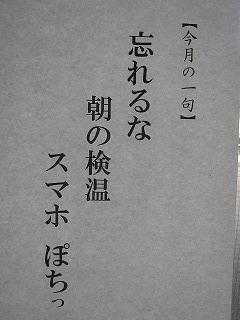 【今月の一句】
忘れるな
朝の検温
スマホ ぽちっ